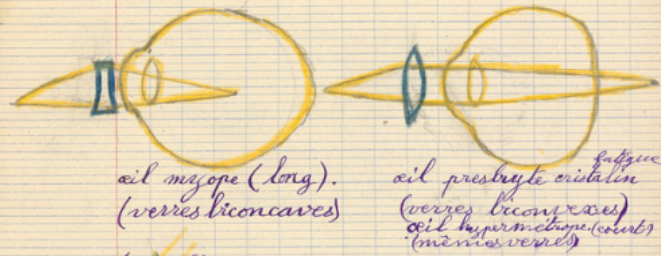 œil myope (long).
(verres biconcaves)
œil presbyte cristalin fatigué
(verres biconvexes)
œil hypermétrope (court)
(mêmes verres)